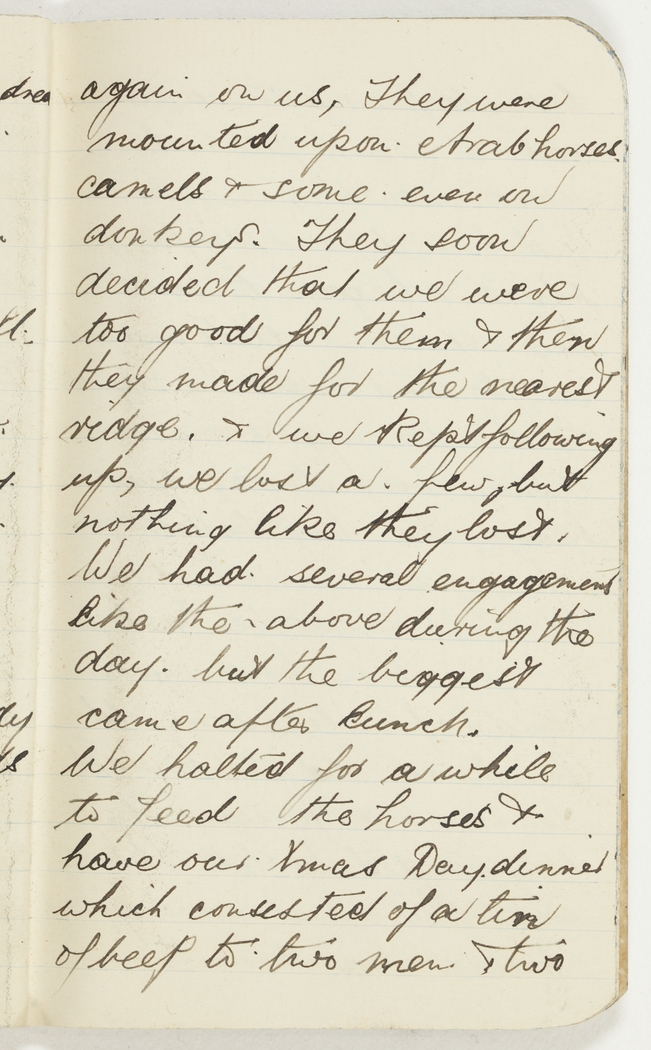 again on us, They were
mounted upon Arab horses
camels & some even on
donkeys. They soon
decided that we were
too good for them & then
they made for the nearest
ridge. & we kept following
up, we lost a few, but
nothing like they lost.
We had several engagement
like the above during the
day. but the biggest
came after lunch.
We halted for a while
to feed the horses &
have our Xmas Day dinner
which consisted of a tin
of beef to two men & two